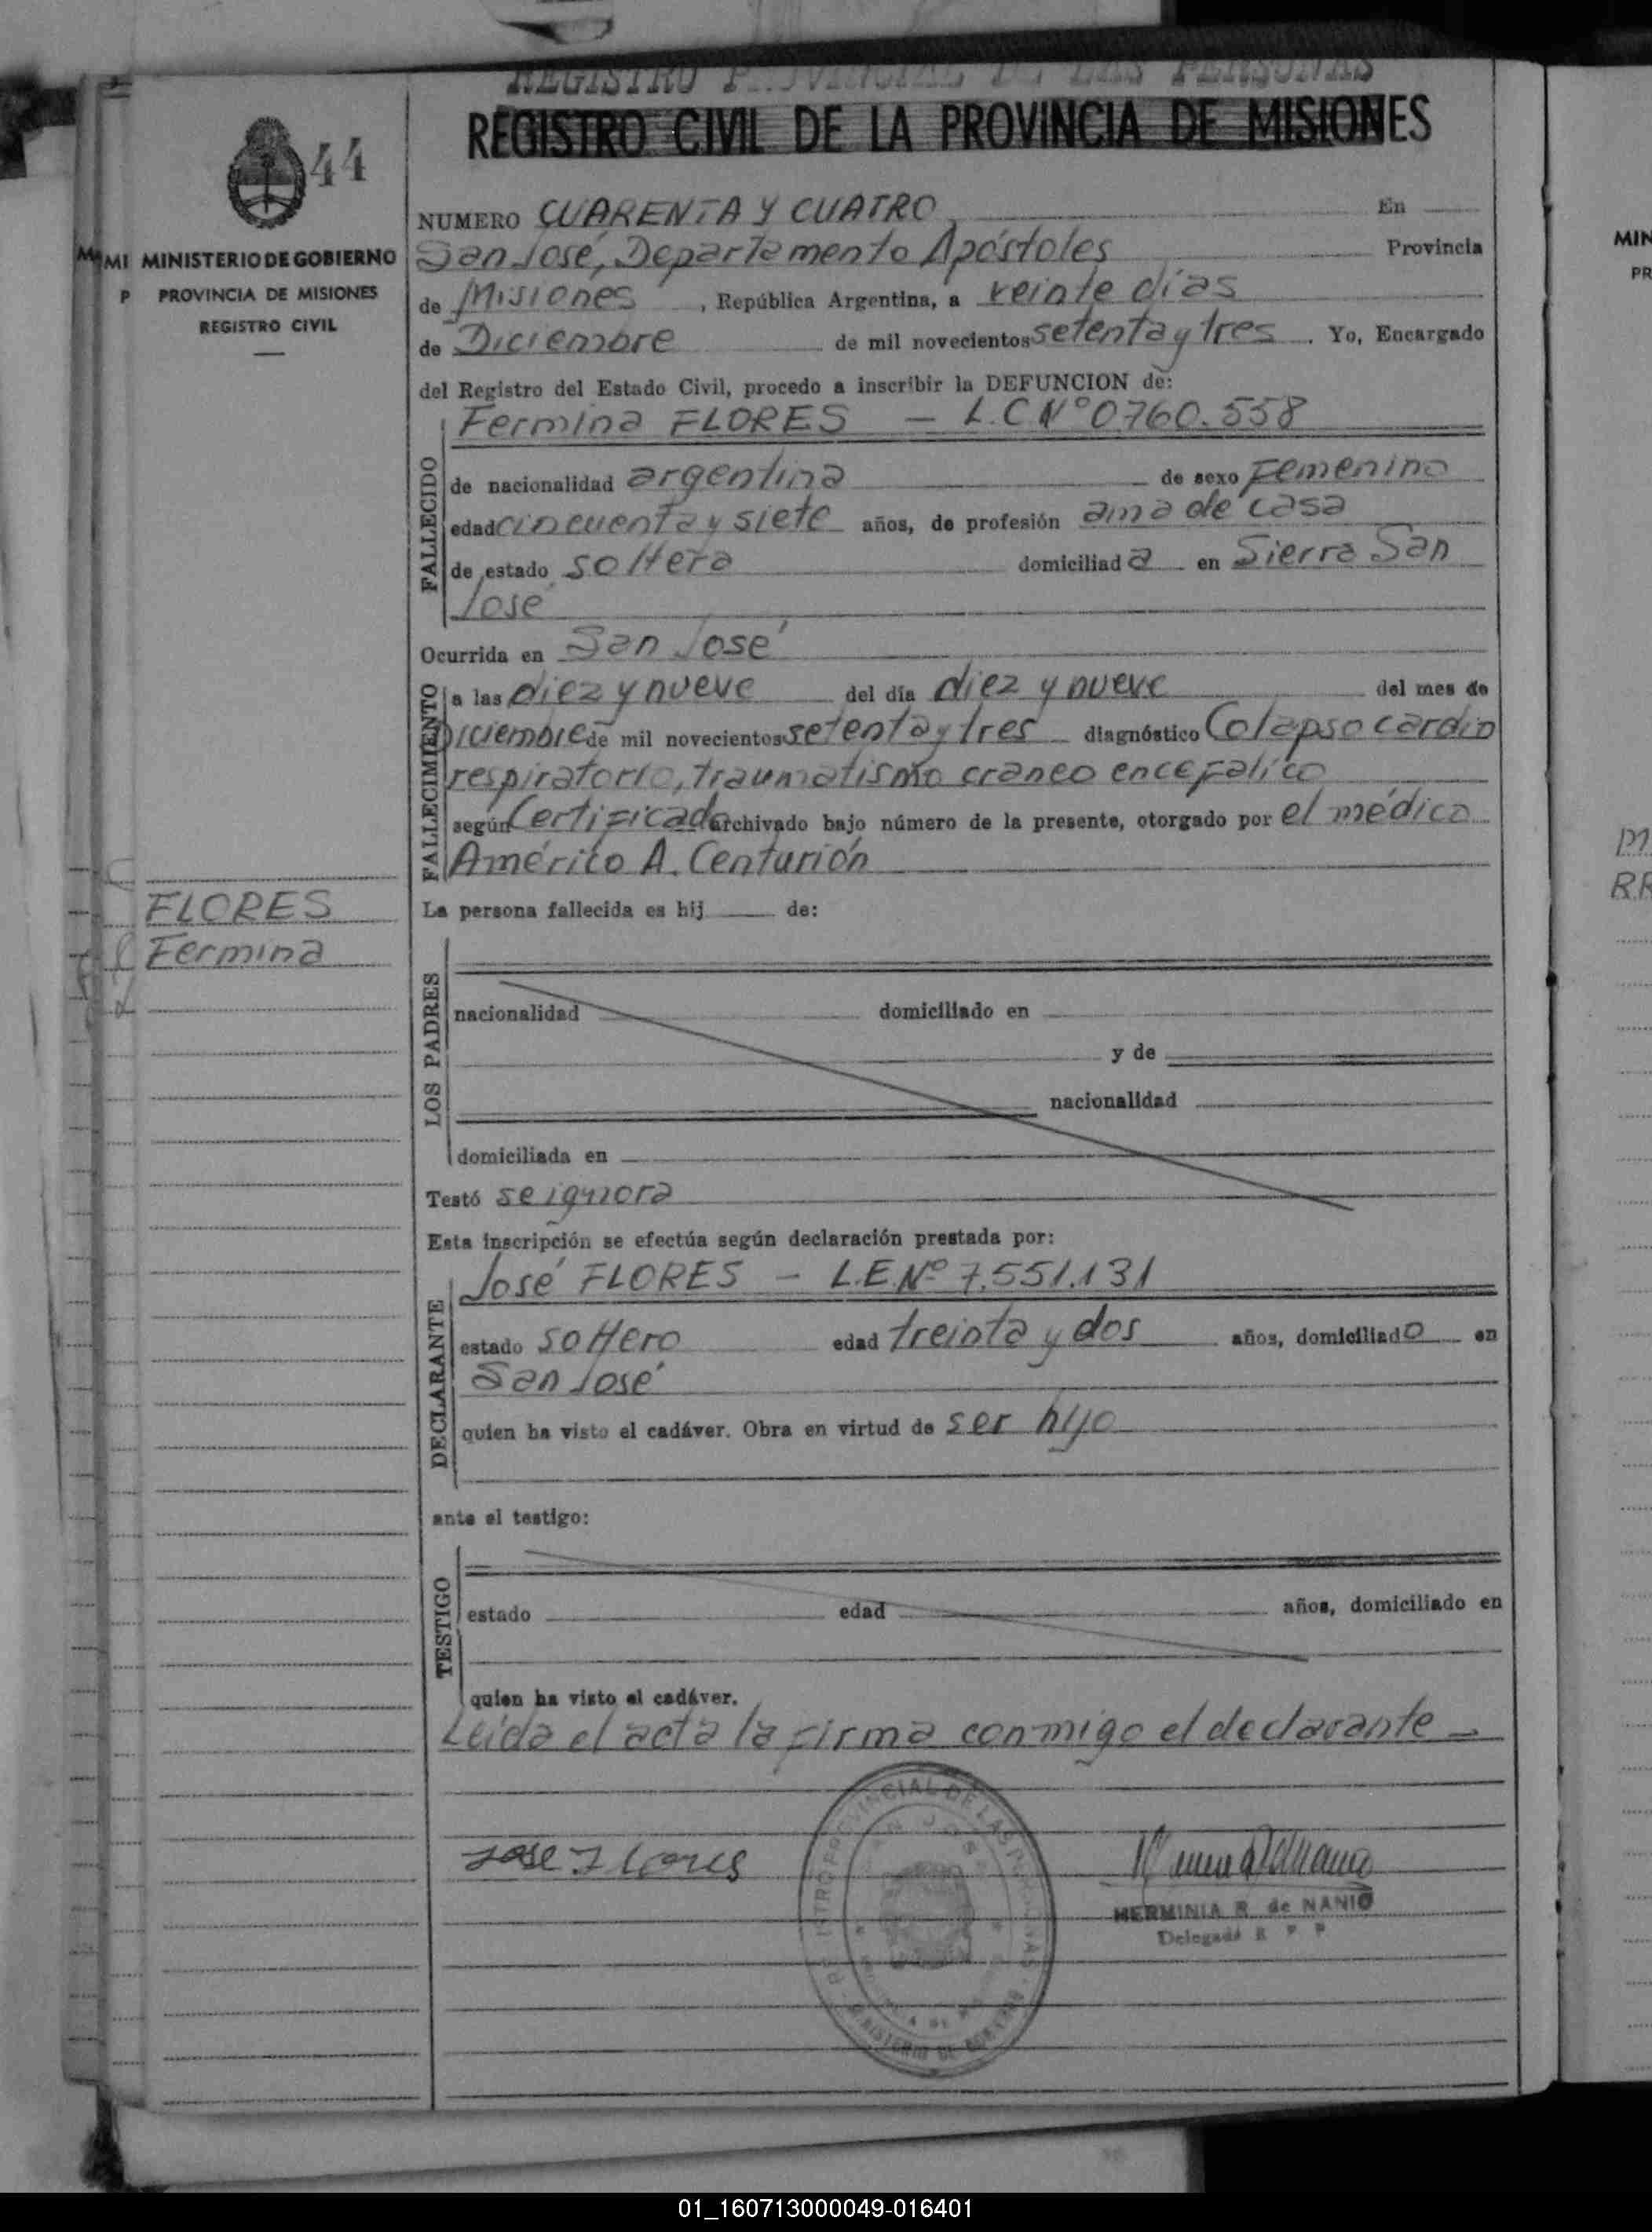 REGISTRO PROVINCIAL DE LAS PERSONAS
REGISTRO CIVIL DE LA PROVINCIA DE MISIONES
44
MINISTERIO DE GOBIERNO
PROVINCIA DE MISIONES
REGISTRO CIVIL
FLORES
Fermina
NUMERO CUARENTA Y CUATRO En
San José, Departamento Apóstoles Provincia
de Misiones, República Argentina, a veinte días
de Diciembre de mil novecientos setenta y tres. Yo, Encargado
del Registro del Estado Civil, procedo a inscribir la DEFUNCION de:
FALLECIDO
Fermina FLORES - L.C Nº 0760.558
de nacionalidad argentina de sexo Femenino
edad cincuenta y siete años, de profesión ama de casa
de estado soltera domiciliad a en Sierra San
José
Ocurrida en San José
FALLECIMIENTO
a las diez y nueve del día diez y nueve del mes de
Diciembre de mil novecientos setenta y tres diagnóstico Colapso cardio
respiratorio, traumatismo craneo encefalico
según Certificado archivado bajo número de la presente, otorgado por el médico
Américo A. Centurión
La persona fallecida es hij de:
LOS PADRES
nacionalidad domiciliado en
y de
nacionalidad
domiciliada en
Testó se ignora
Esta inscripción se efectúa según declaración prestada por:
DECLARANTE
José FLORES - L.E.Nº 7.551.131
estado soltero edad treinta y dos años, domiciliado en
San José
quien ha visto el cadáver. Obra en virtud de ser hijo
ante el testigo:
TESTIGO
estado edad años, domiciliado en
quien ha visto el cadáver.
Leida el acta la firma conmigo el declarante -
Jose Flores
HERMINIA R. de NANIO
Delegada R P P
01_160713000049-016401